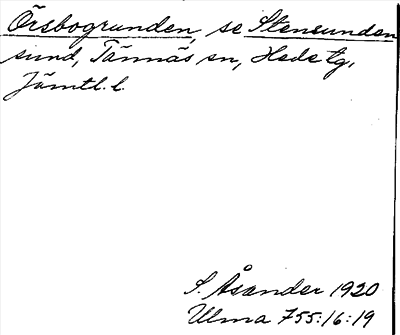 Örsbogrunden, se Stensunden
sund, Tännäs sn, Hede tg,
Jämtl. l.
S. Åsander 1920
Ulma 755:16:19